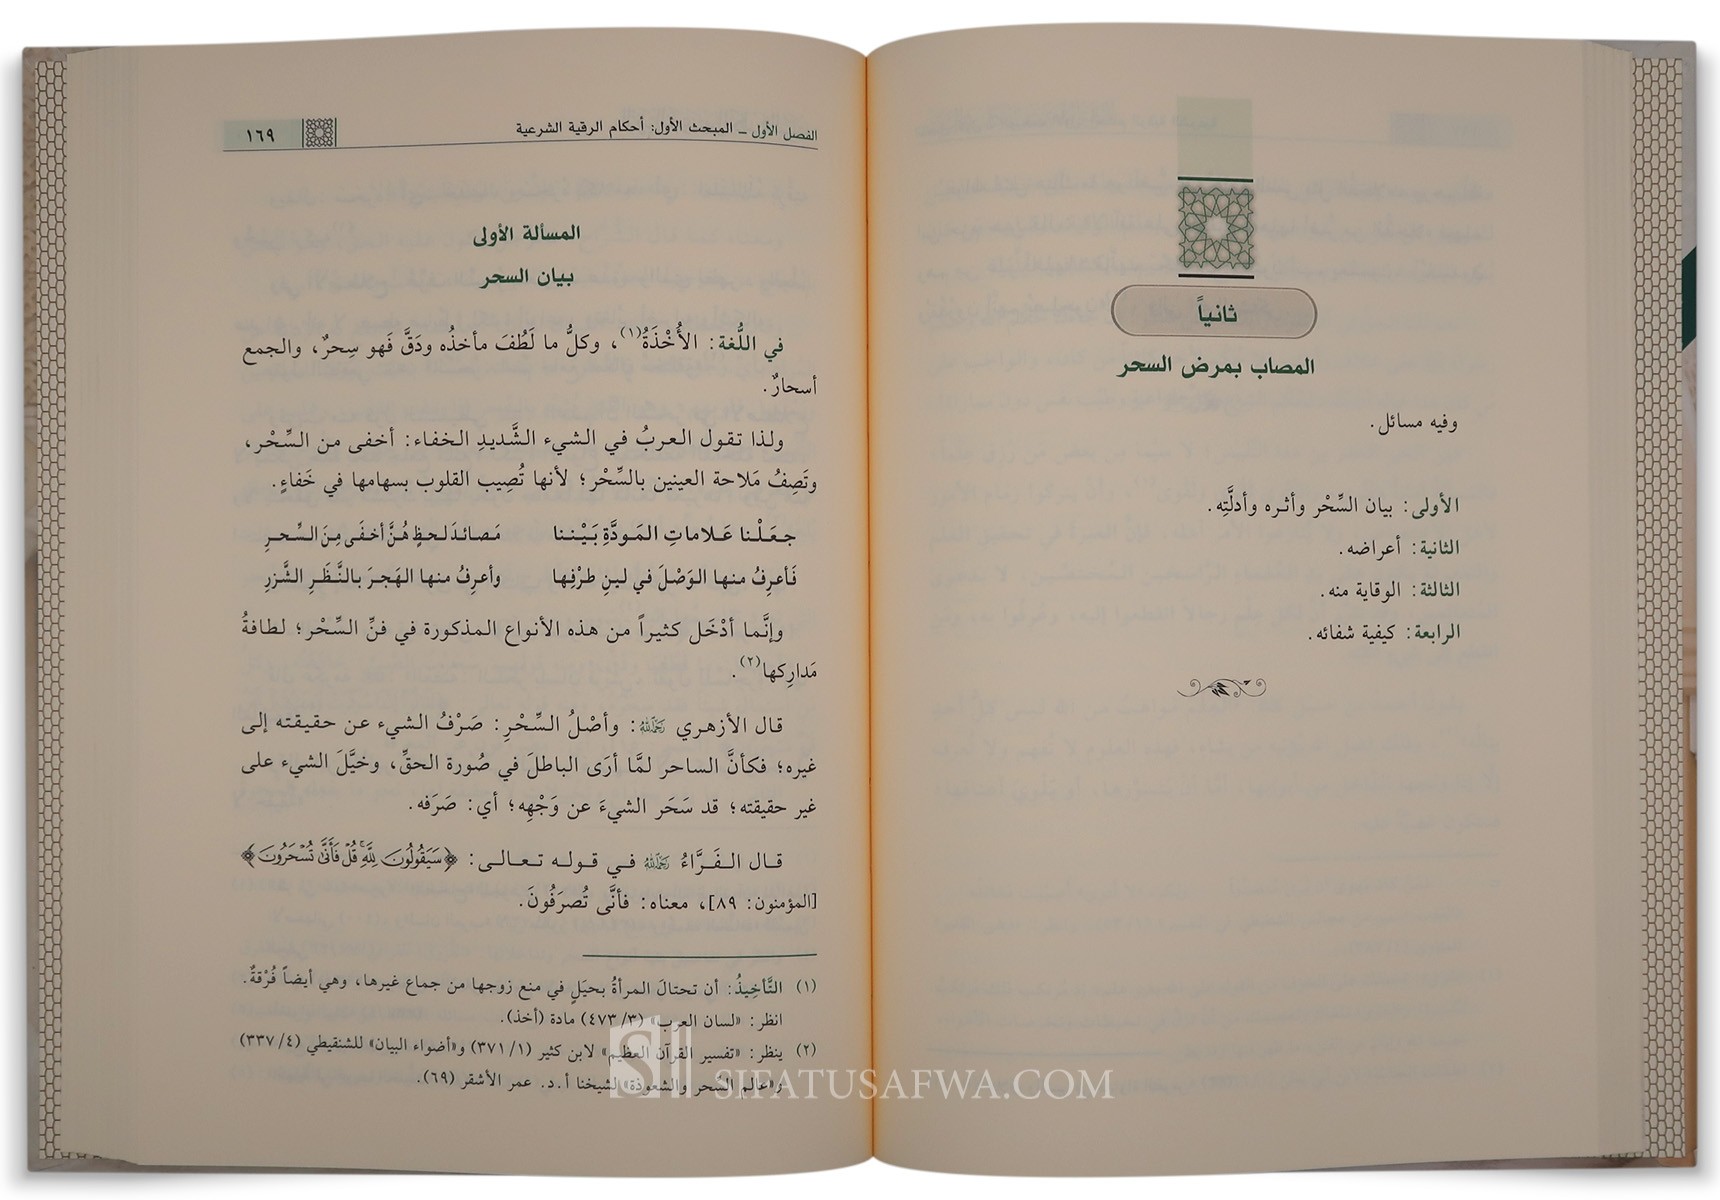 ثانياً
المصاب بمرض السحر
وفيه مسائل.
الأولى: بيان السِّحْر وأثره وأدلَّتِه.
الثانية: أعراضه.
الثالثة: الوقاية منه.
الرابعة: كيفية شفائه.
الفصل الأول ـ المبحث الأول: أحكام الرقية الشرعية
١٦٩
المسألة الأولى
بيان السحر
في اللُّغة: الأُخْذَةُ(١)، وكلُّ ما لَطُفَ مأخذُه ودَقَّ فَهو سِحرٌ، والجمع
أسحارٌ.
ولذا تقول العربُ في الشيء الشَّديدِ الخفاء: أخفى من السِّحْر،
وتَصِفُ مَلاحة العينين بالسِّحْر؛ لأنها تُصِيب القلوب بسهامها في خَفاءٍ.
جـعَـلْـنا عَـلامـاتِ الـمَـودَّةِ بَـيْـنـنـا مَـصـائـدَ لـحـظٍ هُـنَّ أخفَـى مِـنَ السِّـحـرِ
فَـأعـرِفُ منهـا الوَصْـلَ فـي لـيـنِ طـرْفِـهـا وأعـرِفُ منهـا الهَـجـرَ بـالنَّـظَـرِ الشَّـزرِ
وإنَّما أدْخَل كثيراً من هذه الأنواع المذكورة في فنِّ السِّحْر؛ لطافةُ
مَدارِكها(٢).
قال الأزهري رحمه الله: وأصْلُ السِّحْرِ: صَرْفُ الشيء عن حقيقته إلى
غيره؛ فكأنَّ الساحر لمَّا أرَى الباطلَ في صُورة الحقِّ، وخيَّلَ الشيء على
غير حقيقته؛ قد سَحَر الشيءَ عن وَجْهِه؛ أي: صَرَفه.
قـال الـفَـرَّاءُ رحمه الله فـي قـولـه تـعـالـى: ﴿سَيَقُولُونَ لِلَّهِ قُلْ فَأَنَّى تُسْحَرُونَ﴾
[المؤمنون: ٨٩]، معناه: فأنَّى تُصرَفُونَ.
(١) التَّأخِيذُ: أن تحتالَ المرأةُ بحيَلٍ في منع زوجها من جماع غيرها، وهي أيضاً فُرْقةٌ.
انظر: «لسان العرب» (٣/ ٤٧٣) مادة (أخذ).
(٢) ينظر: «تفسير القرآن العظيم» لابن كثير (١/ ٣٧١) و«أضواء البيان» للشنقيطي (٤/ ٣٣٧)
و«عالم السِّحر والشعوذة» لشيخنا أ.د. عمر الأشقر (٦٩).
SIFATUSAFWA.COM